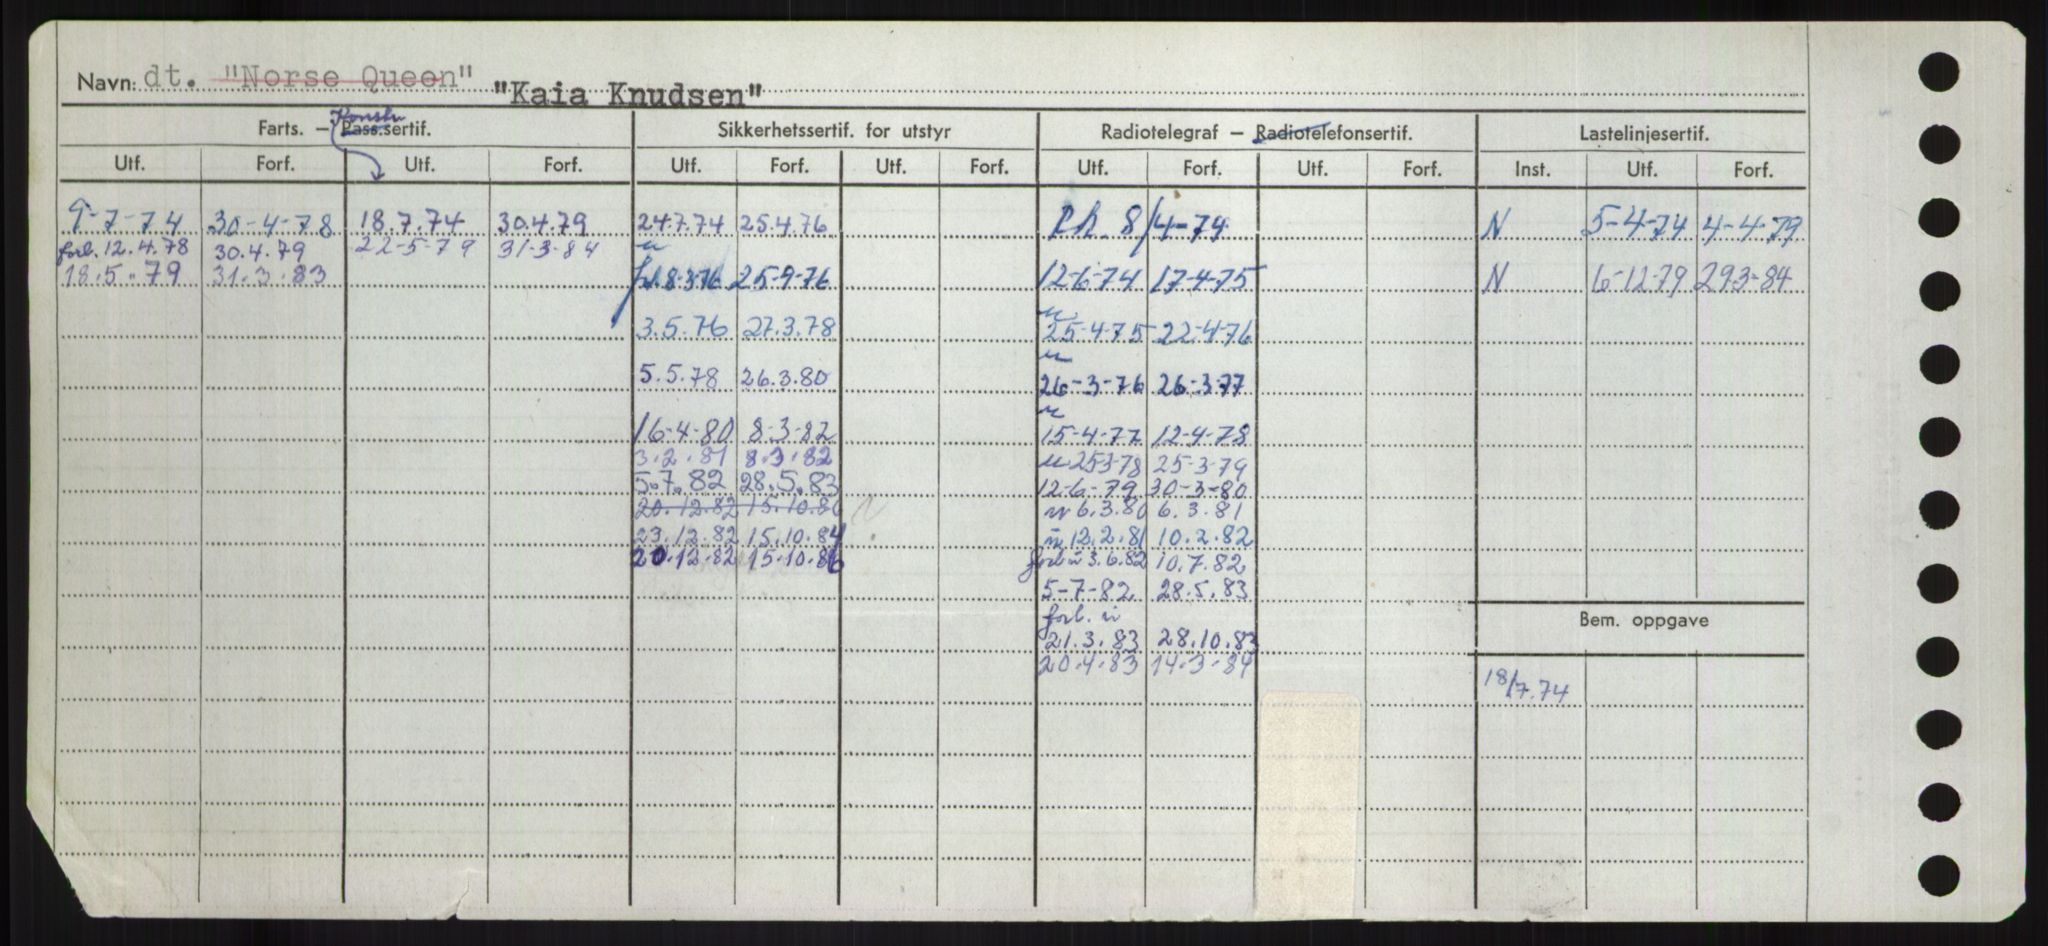 Navn: dt. "Norse Queen" "Kaia Knudsen"
Konstr
Farts. – Pass.sertif. Sikkerhetssertif. for utstyr Radiotelegraf – Radiotelefonsertif. Lastelinjesertif.
Utf. Forf. Utf. Forf. Utf. Forf. Utf. Forf. Utf. Forf. Utf. Forf. Inst. Utf. Forf.
9-7-74 30-4-78 18.7.74 30.4.79 24.7.74 25.4.76 8/4-74 N 5-4-74 4-4-79
forl. 12.4.78 30.4.79 22-5-79 31-3-84
18.5.79 31.3.83 8-3-76 25-9-76 12-6-74 17-4-75 N 6-12-79 29.3-84
3.5.76 27.3.78 25-4-75 22-4-76
5.5.78 26.3.80 26-3-76 26-3-77
16-4-80 8-3-82 15-4-77 12-4-78
3.2.81 8.3.82 25-3-78 25-3-79
5.7.82 28.5.83 12-6-79 30-3-80
20.12.82 15.10.86 6.3.80 6.3.81
23.12.82 15.10.84 12.2.81 10.2.82
20.12.82 15.10.86 3.6.82 10.7.82
5-7-82 28.5.83
forl. Bem. oppgave
21.3.83 28.10.83
20.4.83 14.3.84
18/7.74